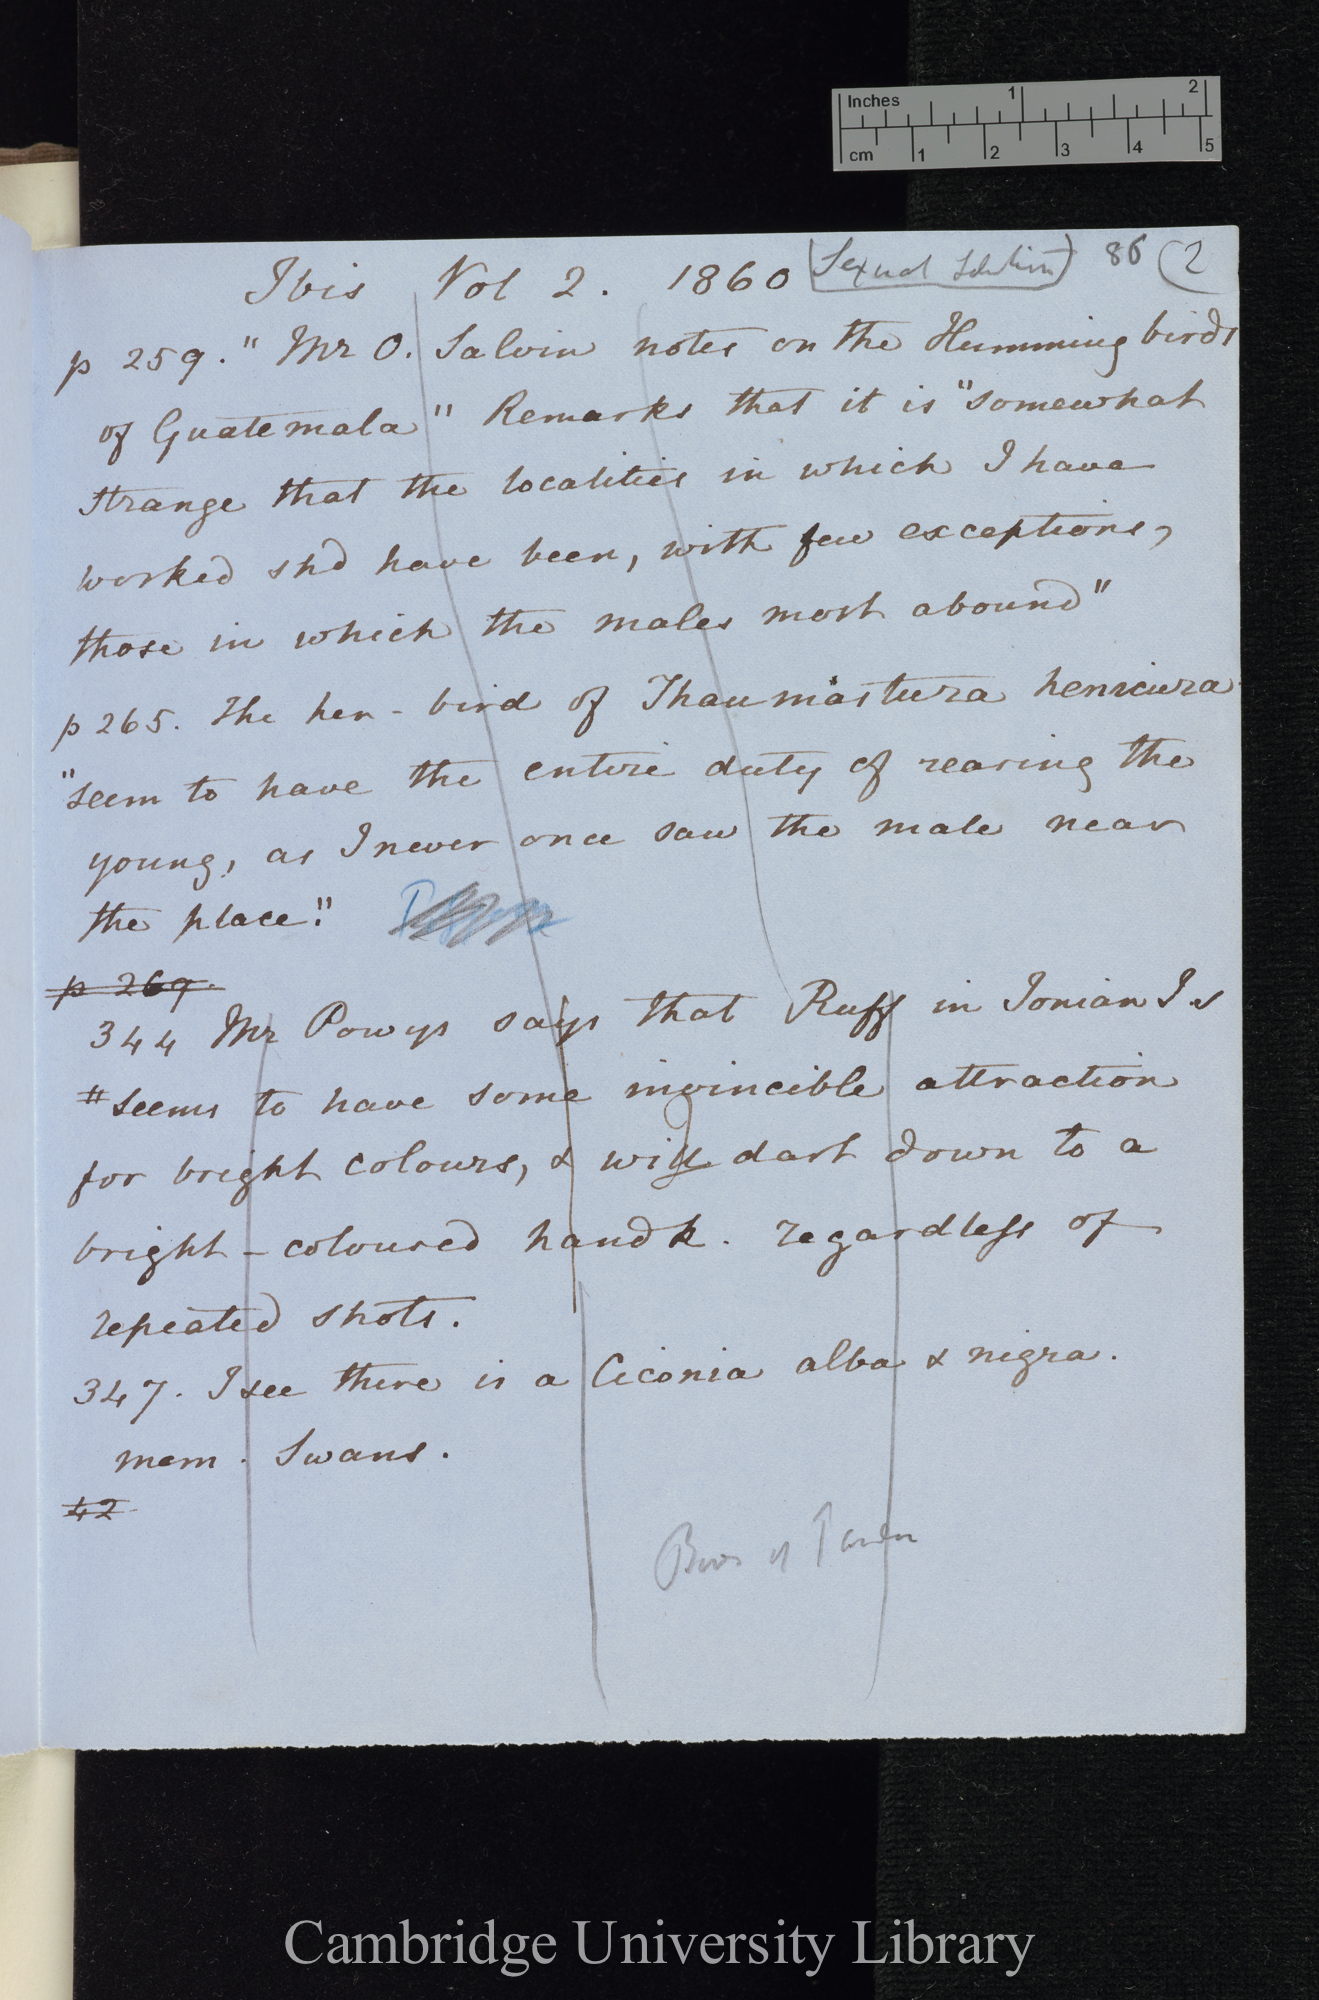 Inches 1 2
cm 1 2 3 4 5
Ibis Vol 2. 1860 Sexual Selection 86 (2
p 259. "Mr O. Salvin notes on the Humming birds
of Guatemala" Remarks that it is "somewhat
strange that the localities in which I have
worked shd have been, with few exceptions,
those in which the males most abound"
p 265. The hen-bird of Thaumastura henicura
"seem to have the entire duty of rearing the
young, as I never once saw the male near
the place."
p 269.
344 Mr Powys says that Ruff in Ionian Is
"seems to have some invincible attraction
for bright colours, & will dart down to a
bright-coloured handk. regardless of
repeated shots.
347. I see there is a Ciconia alba & nigra.
mem. Swans.
42
Cambridge University Library